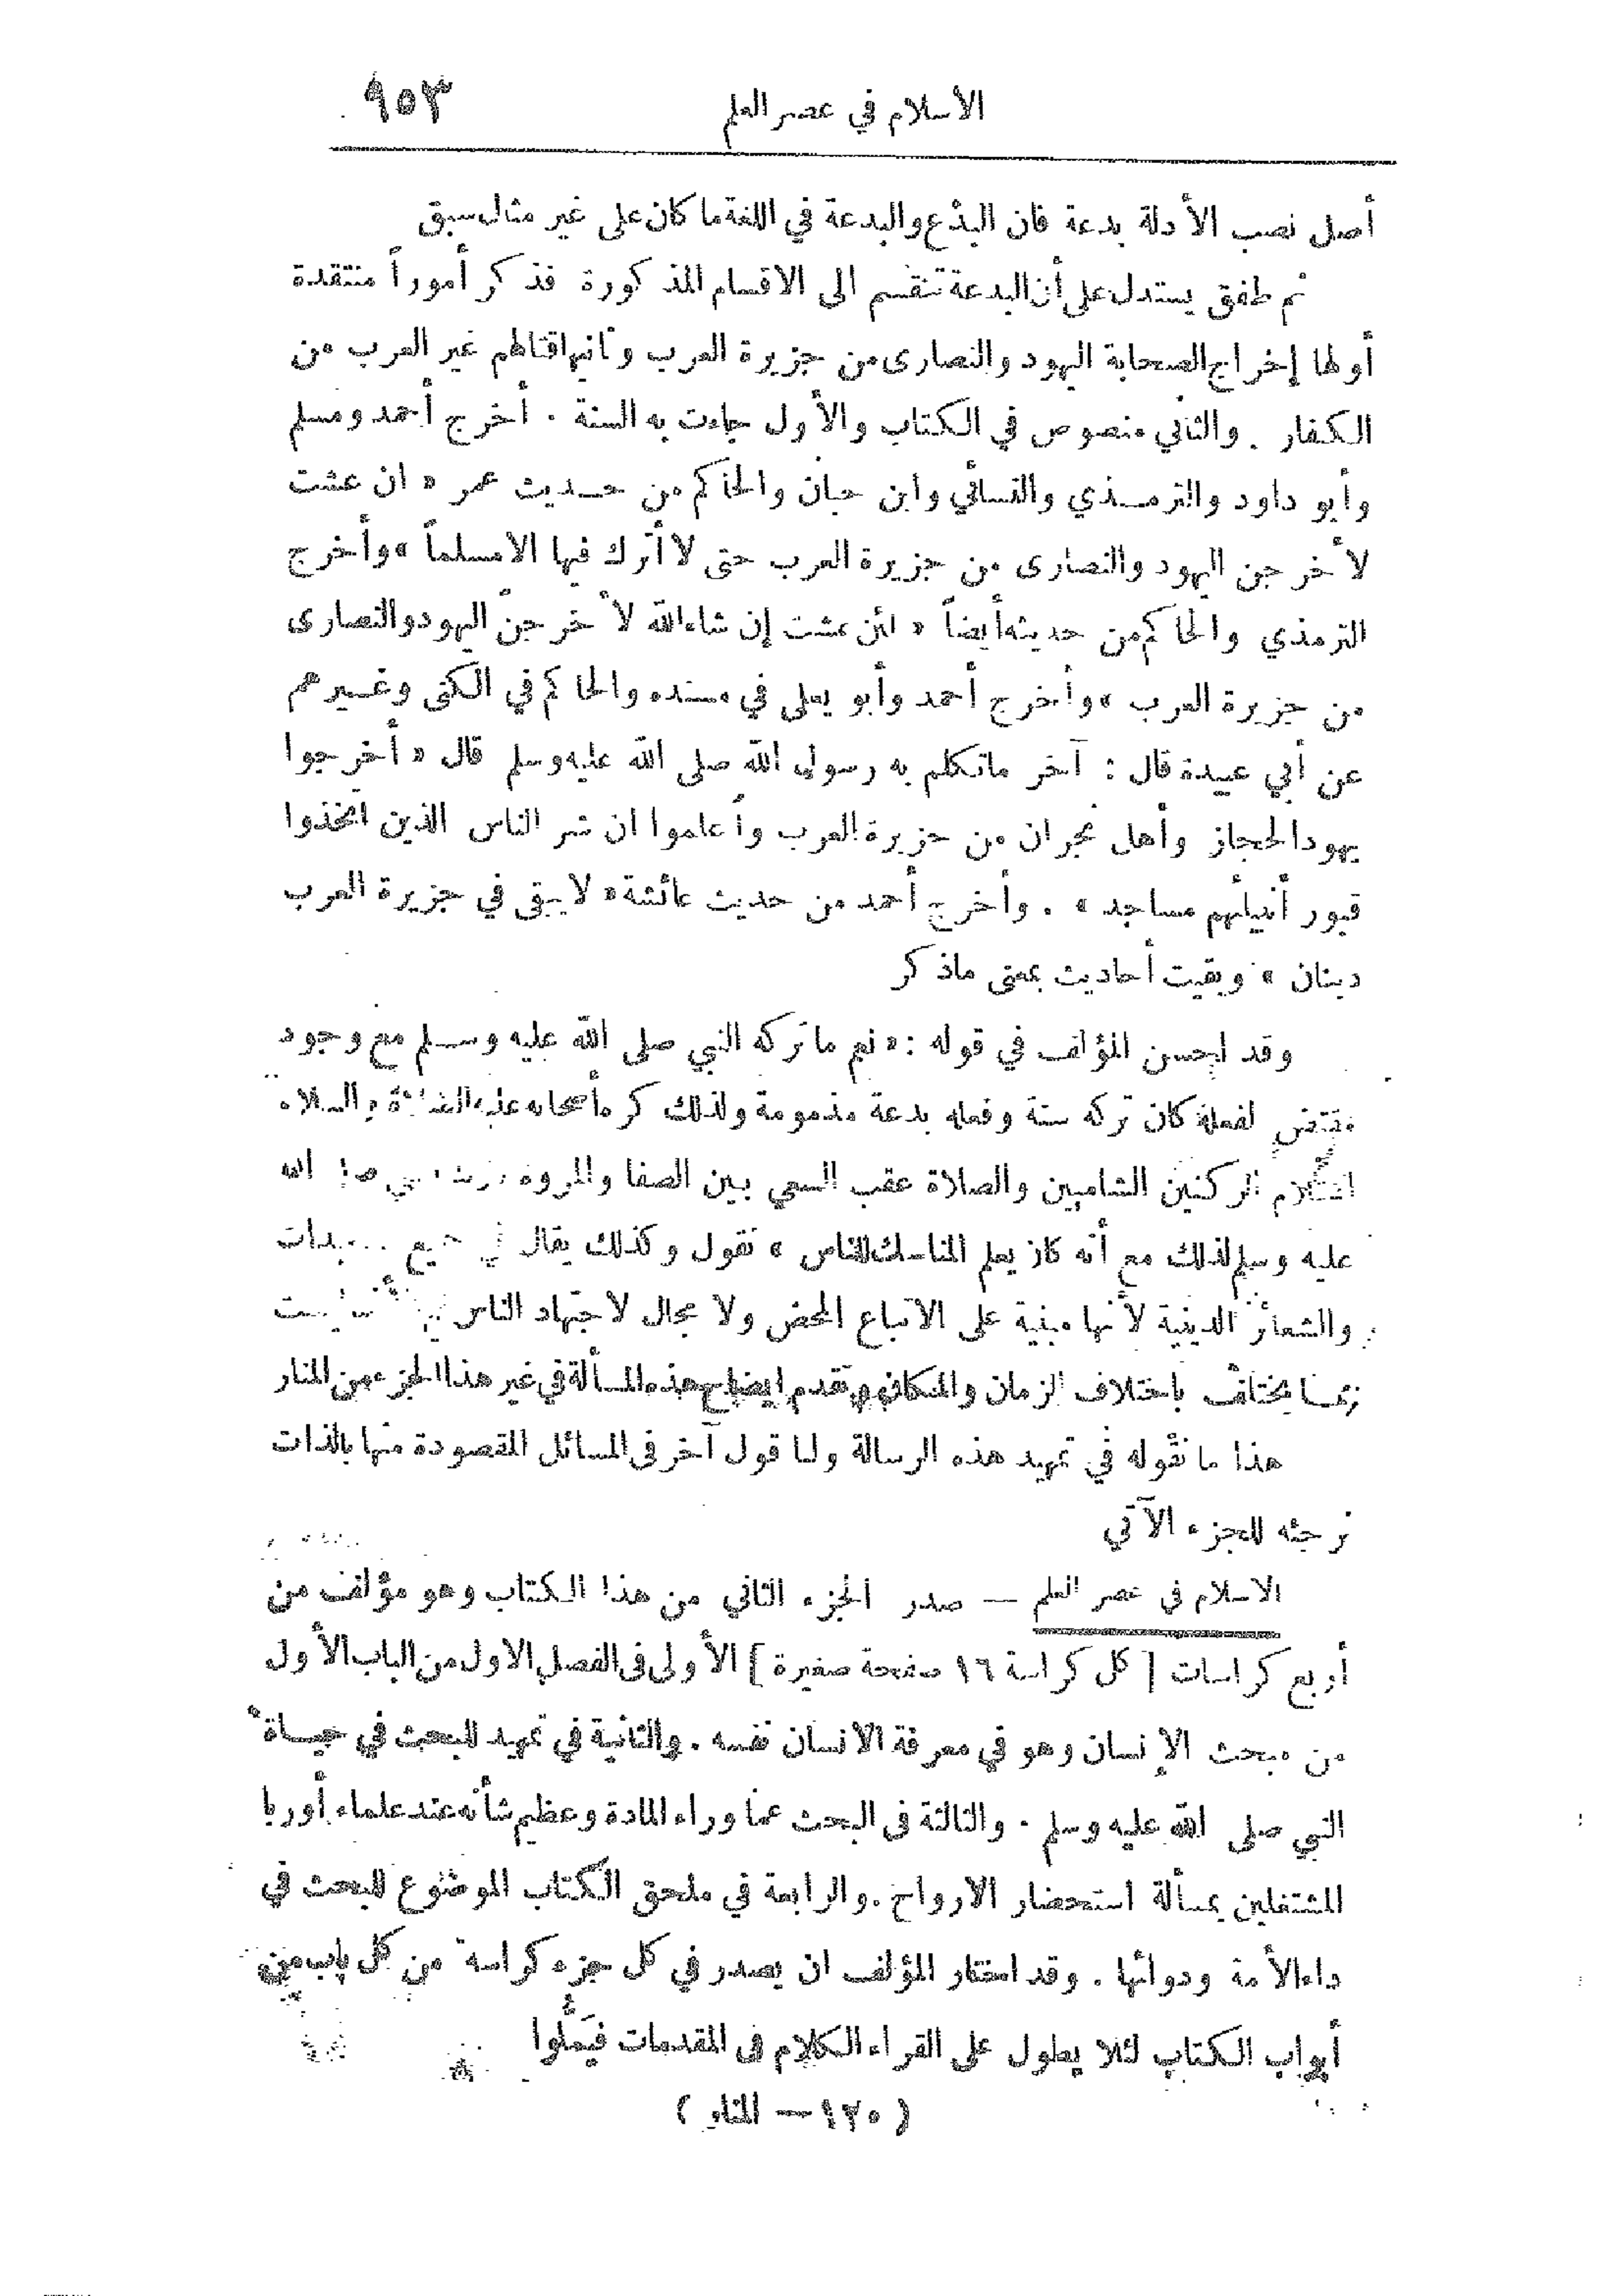 الاسلام في عصر العلم
٩٥٣
أصل نصب الأدلة بدعة فان البدع والبدعة في اللغة ما كان على غير مثال سبق
ثم طفق يستدل على أن البدعة تنقسم الى الاقسام المذكورة فذكر أموراً منتقدة
أولها إخراج الصحابة اليهود والنصارى من جزيرة العرب وثانيها قتالهم غير العرب من
الكفار . والثاني منصوص في الكتاب والأول جاءت به السنة . أخرج أحمد ومسلم
وأبو داود والترمذي والنسائي وابن حبان والحاكم من حديث عمر « ان عشت
لأخرجن اليهود والنصارى من جزيرة العرب حتى لا أترك فيها الا مسلماً » وأخرج
الترمذي والحاكم من حديثه أيضاً « لئن عشت إن شاء الله لأخرجنّ اليهود والنصارى
من جزيرة العرب » وأخرج أحمد وأبو يعلى في مسنده والحاكم في الكنى وغيرهم
عن أبي عبيدة قال : آخر ما تكلم به رسول الله صلى الله عليه وسلم قال « أخرجوا
يهود الحجاز وأهل نجران من جزيرة العرب وأعلموا ان شر الناس الذين اتخذوا
قبور أنبيائهم مساجد » . وأخرج أحمد من حديث عائشة « لا يبقى في جزيرة العرب
دينان » وبقيت أحاديث بمعنى ما ذكر
وقد احسن المؤلف في قوله : « نعم ما تركه النبي صلى الله عليه وسلم مع وجود
مقتض لفعله كان تركه سنة وفعله بدعة مذمومة ولذلك كره أصحابه عليه الصلاة والسلام
استلام الركنين الشاميين والصلاة عقب السعي بين الصفا والمروة الله
عليه وسلم لذلك مع أنه كان يعلم المناسك للناس » نقول وكذلك يقال في جميع
والشعائر الدينية لأنها مبنية على الاتباع المحض ولا مجال لاجتهاد الناس
مما يختلف باختلاف الزمان والمكان وتقدم ايضاح هذه المسألة في غير هذا الجزء من المنار
هذا ما نقوله في تمهيد هذه الرسالة ولنا قول آخر في المسائل المقصودة منها بالذات
نرجئه للجزء الآتي
الاسلام في عصر العلم — صدر الجزء الثاني من هذا الكتاب وهو مؤلف من
أربع كراسات [ كل كراسة ١٦ صفحة صغيرة ] الأولى في الفصل الاول من الباب الأول
من مبحث الإنسان وهو في معرفة الانسان نفسه . والثانية في تمهيد للبحث في حياة
النبي صلى الله عليه وسلم . والثالثة في البحث عما وراء المادة وعظيم شأنه عند علماء أوربا
المشتغلين بمسألة استحضار الارواح . والرابعة في ملحق الكتاب الموضوع للبحث في
داء الأمة ودوائها . وقد اختار المؤلف ان يصدر في كل جزء كراسة من كل باب من
أبواب الكتاب لئلا يطول على القراء الكلام في المقدمات فيَملُّوا
( ١٢٠ — المنار )